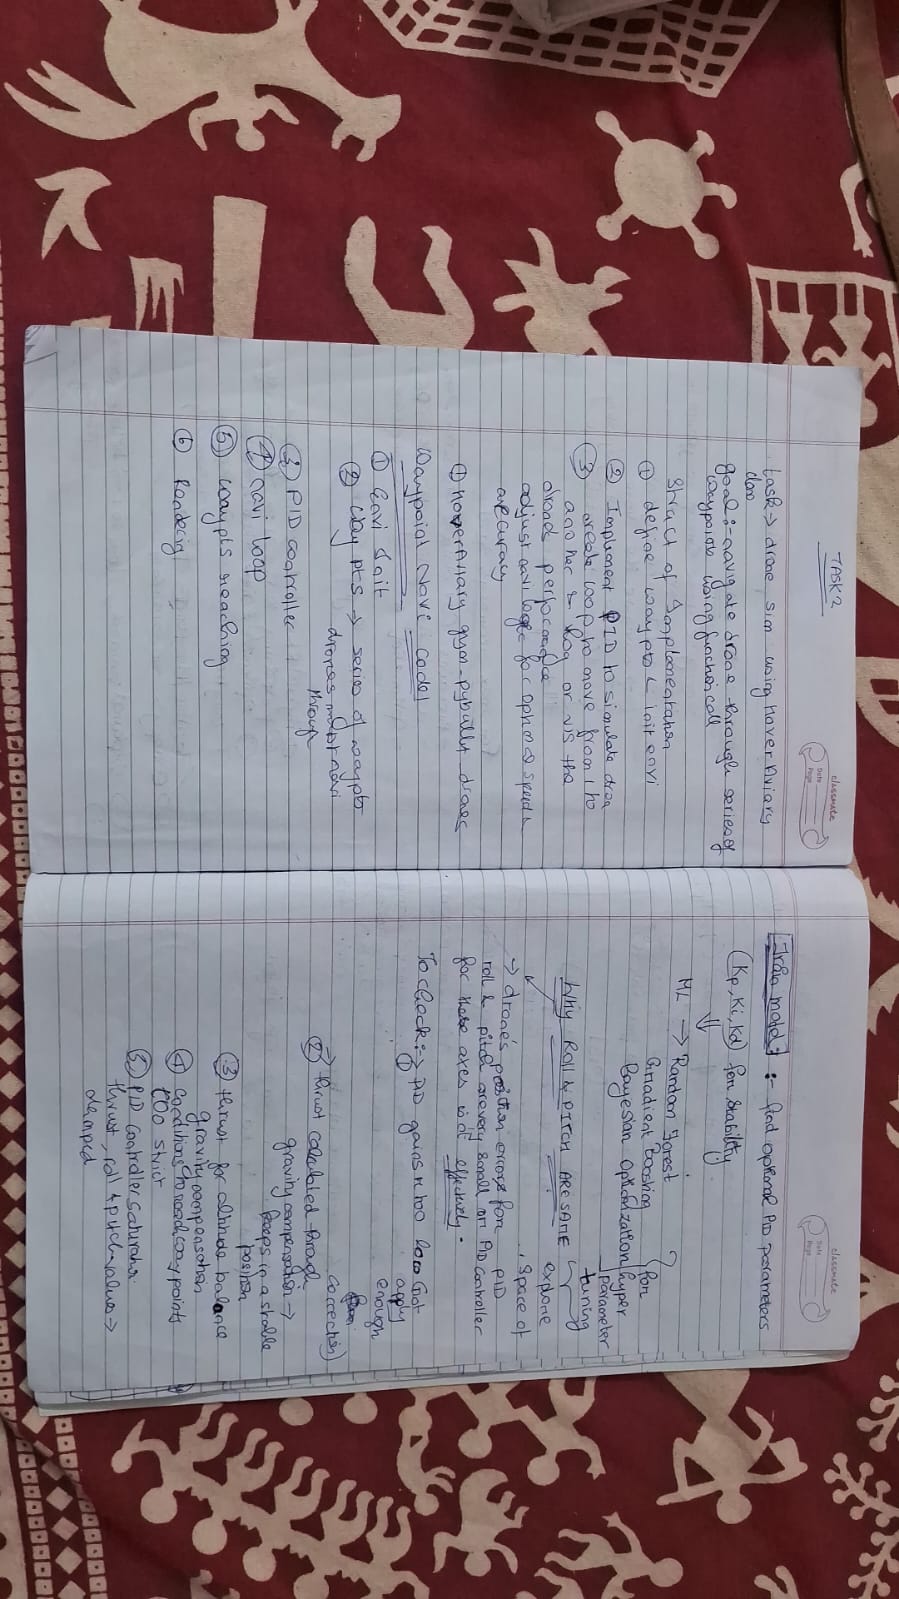 TASK 2
classmate
Date
Page
task → drone sim using hoverAviary
goal :- navigate drone through series of
waypoints using function call
Struct of Implementation
① define waypts & init envi
② Implement PID to simulate
③ create loop to move from 1 to
another & log or vis the
drone's performance
adjust envi logic for optimal speed &
accuracy
① HoverAviary gym-pybullet-drones
Waypoint Navi Code
① Envi Init
② Way pts → series of waypts
drones must navi
through
③ PID controller
④ navi loop
⑤ way pts reaching
⑥ Rendering
classmate
Date
Page
Train model :- find optimal PID parameters
(Kp, Ki, Kd) for stability
ML → Random Forest
Gradient Boosting
for
Bayesian Optimization
hyper
parameter
tuning
Why ROLL & PITCH ARE SAME
explore
space of
PID
→ drone's position errors for
roll & pitch are very small or PID controller
for these axes is effectively.
To check :→ ① PID gains r too low (not
apply
enough
correction)
② thrust calculated through
gravity compensation →
keeps in a stable
position
③ thrust for altitude balance
gravity compensation
④ Conditions to reach way points
too strict
⑤ PID Controller saturation
thrust, roll & pitch values →
clamped